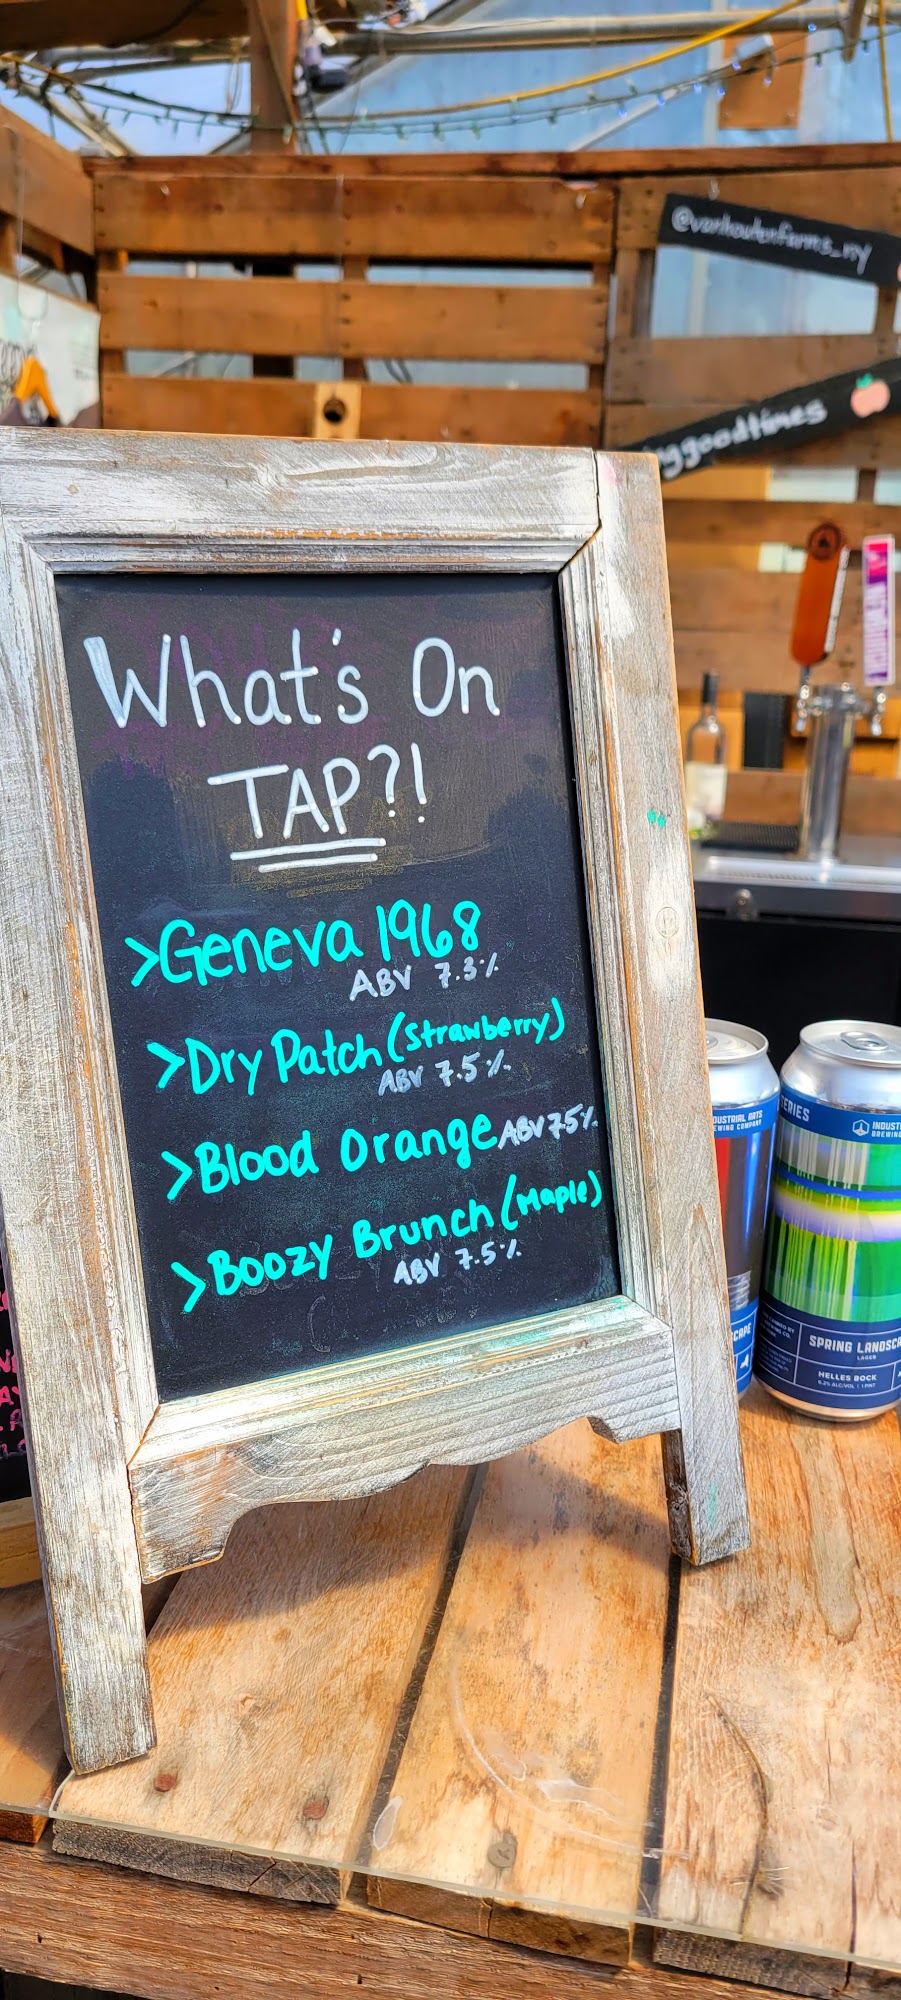 @vanhoutenfarms_ny
ggoodtimes
What's On
TAP?!
>Geneva 1968
ABV 7.3%
>Dry Patch (Strawberry)
ABV 7.5%
>Blood Orange ABV 7.5%
>Boozy Brunch (Maple)
ABV 7.5%
DUSTRIAL ARTS
EWING COMPANY
SCAPE
ERIES
INDUSTRI
BREWING
SPRING LANDSCA
LAGER
HELLES BOCK
6.2% ALC/VOL | 1 PINT